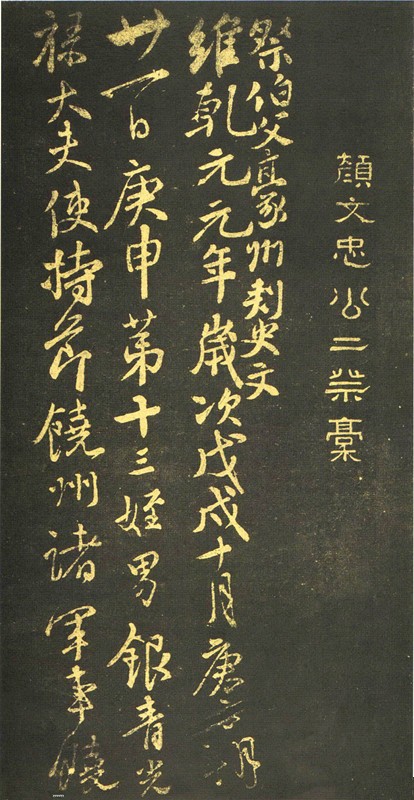 顏文忠公二祭稾
祭伯父豪州刺史文
維乾元元年歲次戊戌十月庚寅朔
廿一日庚申苐十三姪男銀青光
祿大夫使持節饒州諸軍事饒